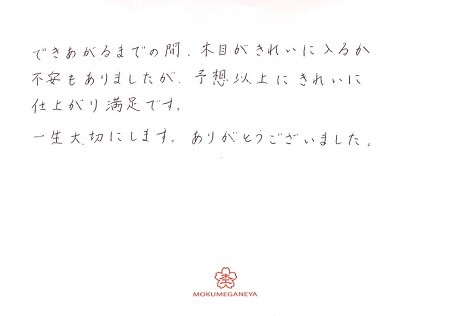 できあがるまでの間、木目がきれいに入るか
不安もありましたが、予想以上にきれいに
仕上がり満足です。
一生大切にします。ありがとうございました。
杢
MOKUMEGANEYA